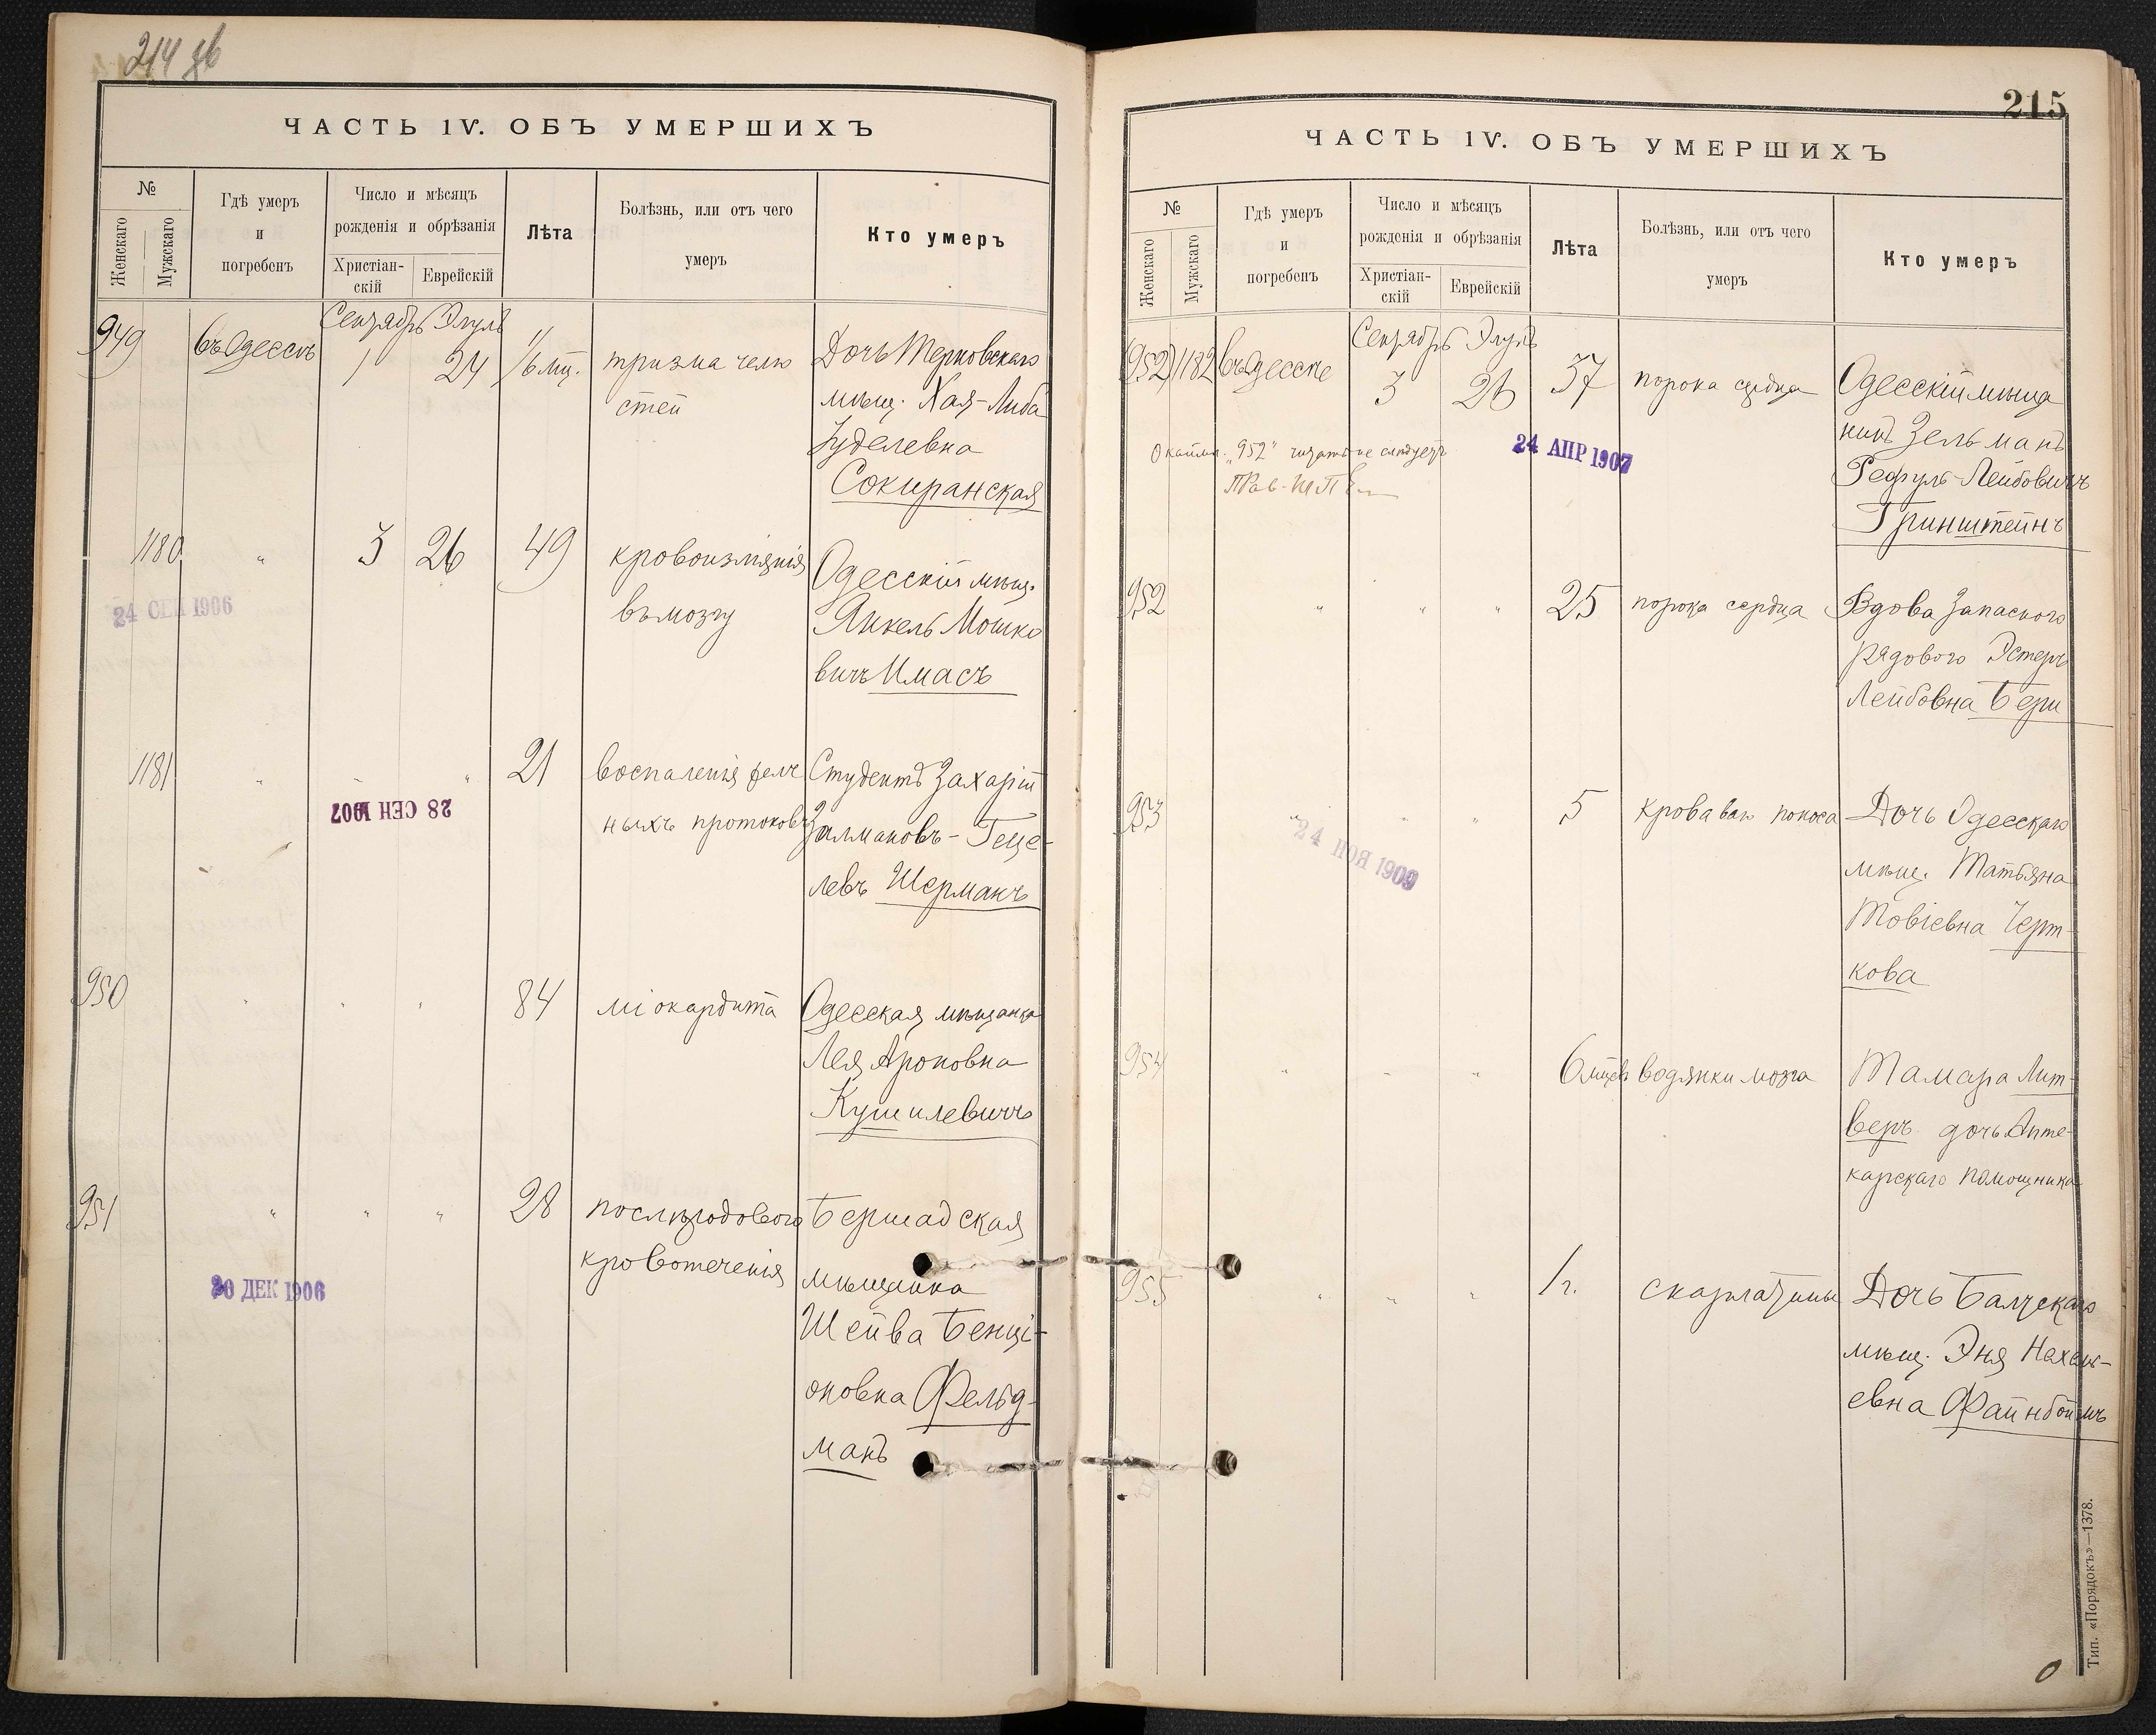 214 дв
ЧАСТЬ IV. ОБЪ УМЕРШИХЪ
№
Женскаго
Мужскаго
Гдѣ умеръ
и
погребенъ
Число и мѣсяцъ
рожденія и обрѣзанія
Христіан-
скій
Еврейскій
Лѣта
Болѣзнь, или отъ чего
умеръ
Кто умеръ
Сентябрь Элуль
949 въ Одессѣ 1 24 тризма челю
стей
Дочь
мѣщ. Хая-Либа
Іуделевна
Сокиранская
1180 " 3 26 49 кровоизліянія
въ мозгу
Одесскій мѣщ.
Янкель Мошко
вичъ Имасъ
24 СЕН 1906
1181 " " " 21 воспаленія желч
ныхъ протоковъ
Студентъ Захарій
Залмановъ-Геце-
левъ Шерманъ
28 СЕН 1907
950 " " " 84 міокардита
Одесская мѣщанка
Лея Ароновна
Кушилевичъ
951 " " " 28 послѣродового
кровотеченія
Бершадская
мѣщанка
Шейва Бенці-
оновна Фельд-
манъ
20 ДЕК 1906
215
ЧАСТЬ IV. ОБЪ УМЕРШИХЪ
№
Женскаго
Мужскаго
Гдѣ умеръ
и
погребенъ
Число и мѣсяцъ
рожденія и обрѣзанія
Христіан-
скій
Еврейскій
Лѣта
Болѣзнь, или отъ чего
умеръ
Кто умеръ
Сентябрь Элуль
(952) 1182 въ Одессѣ 3 26 37 порока сердца
Одесскій мѣща
нинъ Зельманъ
Рефуль-Лейбовичъ
Гринштейнъ
"952" читать не слѣдуетъ
24 АПР 1907
952 " " " 25 порока сердца
Вдова запасного
рядового Эстеръ
Лейбовна Бери
953 " " " 5 кроваваго поноса
Дочь Одесскаго
мѣщ. Татьяна
Товіевна Черт-
кова
24 НОЯ 1909
954 " " " 6 мѣсц водянки мозга
Тамара Лит-
веръ дочь Апте-
карскаго помощника
955 " " " 1 г. скарлатины
Дочь Балтскаго
мѣщ. Эня
евна Файнбоймъ
Тип. «Порядокъ»—1378.